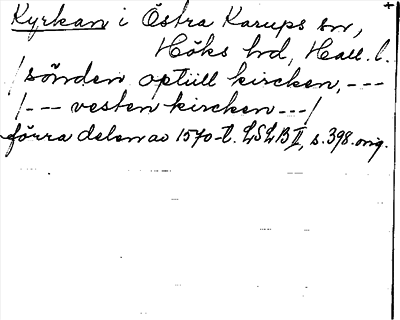 Kyrkan i Östra Karups sn,
Höks hd, Hall. l.
/ sönden optiill kircken, ---
/--- vesten kircken ---/
förra delen av 1570-t. LSLB II, s. 398. orig.